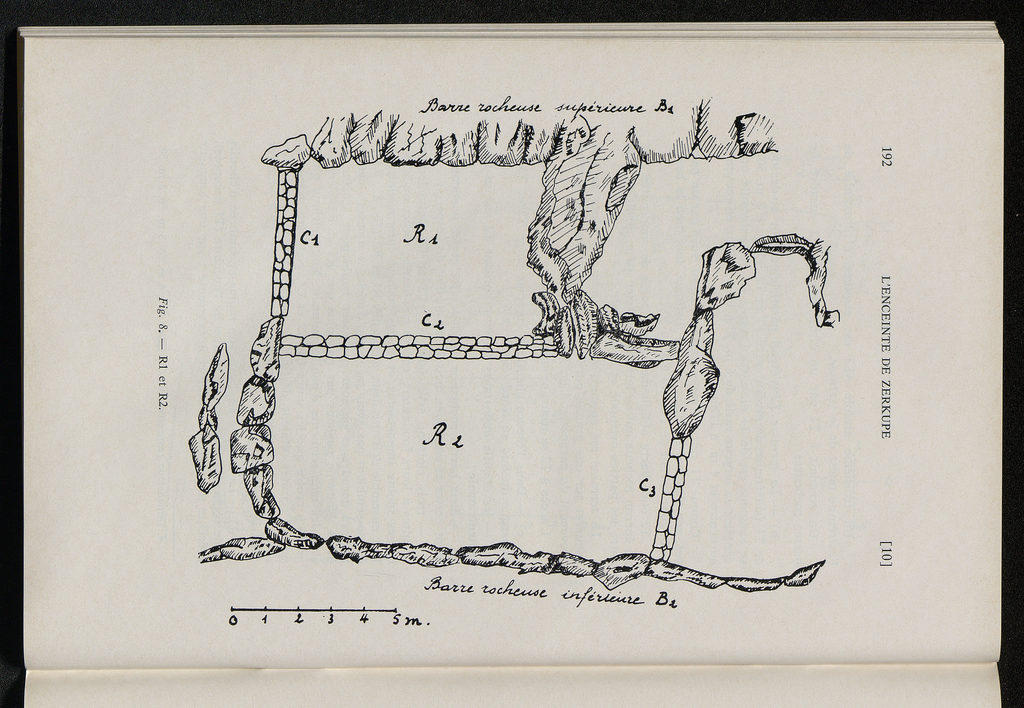 192
L'ENCEINTE DE ZERKUPE
[10]
Barre rocheuse supérieure B1
C1
R1
C2
R2
C3
Barre rocheuse inférieure B2
0 1 2 3 4 5 m.
Fig. 8. — R1 et R2.